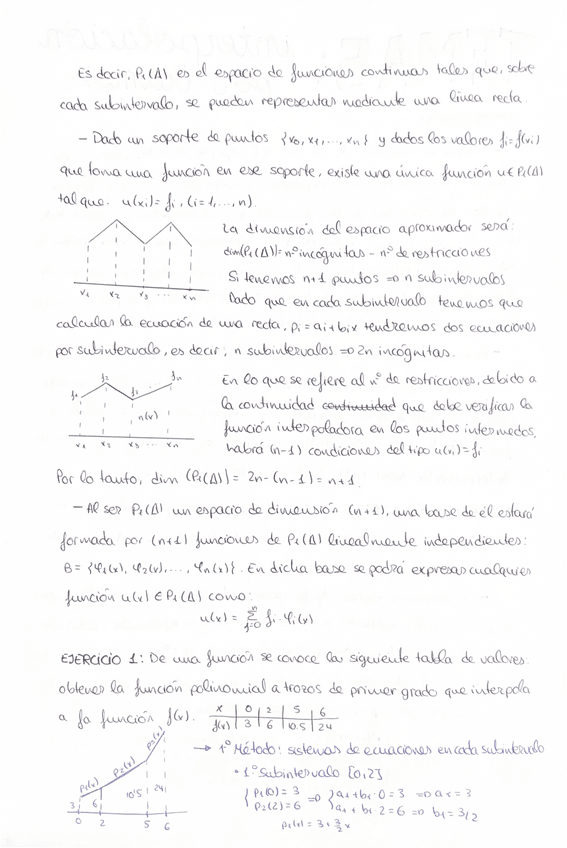 Es decir, P₁(Δ) es el espacio de funciones continuas tales que, sobre
cada subintervalo, se pueden representar mediante una línea recta.
- Dado un soporte de puntos {x₀, x₁, ..., xₙ} y dados los valores fᵢ=f(xᵢ)
que toma una función en ese soporte, existe una única función u∈P₁(Δ)
tal que: u(xᵢ)=fᵢ, (i=1,...,n).
La dimensión del espacio aproximador será:
dim(P₁(Δ))= nº incógnitas - nº de restricciones
Si tenemos n+1 puntos ⇒ n subintervalos
Dado que en cada subintervalo tenemos que
x₁ x₂ x₃ ... xₙ
calcular la ecuación de una recta, pᵢ=aᵢ+bᵢx tendremos dos ecuaciones
por subintervalo, es decir, n subintervalos ⇒ 2n incógnitas.
f₁ f₂ f₃ fₙ
u(x)
x₁ x₂ x₃ ... xₙ
En lo que se refiere al nº de restricciones, debido a
la continuidad continuidad que debe verificar la
función interpoladora en los puntos intermedos,
habrá (n-1) condiciones del tipo u(xᵢ)=fᵢ
Por lo tanto, dim (P₁(Δ)) = 2n-(n-1)=n+1.
- Al ser P₁(Δ) un espacio de dimensión (n+1), una base de él estará
formada por (n+1) funciones de P₁(Δ) linealmente independientes:
B = {φ₁(x), φ₂(x), ..., φₙ(x)}. En dicha base se podrá expresar cualquier
función u(x) ∈ P₁(Δ) como:
u(x) = Σ fᵢ·φᵢ(x)
EJERCICIO 1: De una función se conoce la siguiente tabla de valores.
obtener la función polinomial a trozos de primer grado que interpola
a fa función f(x).
x 0 2 5 6
f(x) 3 6 10.5 24
p₁(x) p₂(x) p₃(x)
3 6 10'5 24
0 2 5 6
→ 1º Método: sistemas de ecuaciones en cada subintervalo
• 1º Subintervalo [0,2]
{p₁(0)=3 ⇒ {a₁+b₁·0=3 ⇒ a₁=3
p₂(2)=6 a₁+b₁·2=6 ⇒ b₁=3/2
p₁(x)=3+3/2x